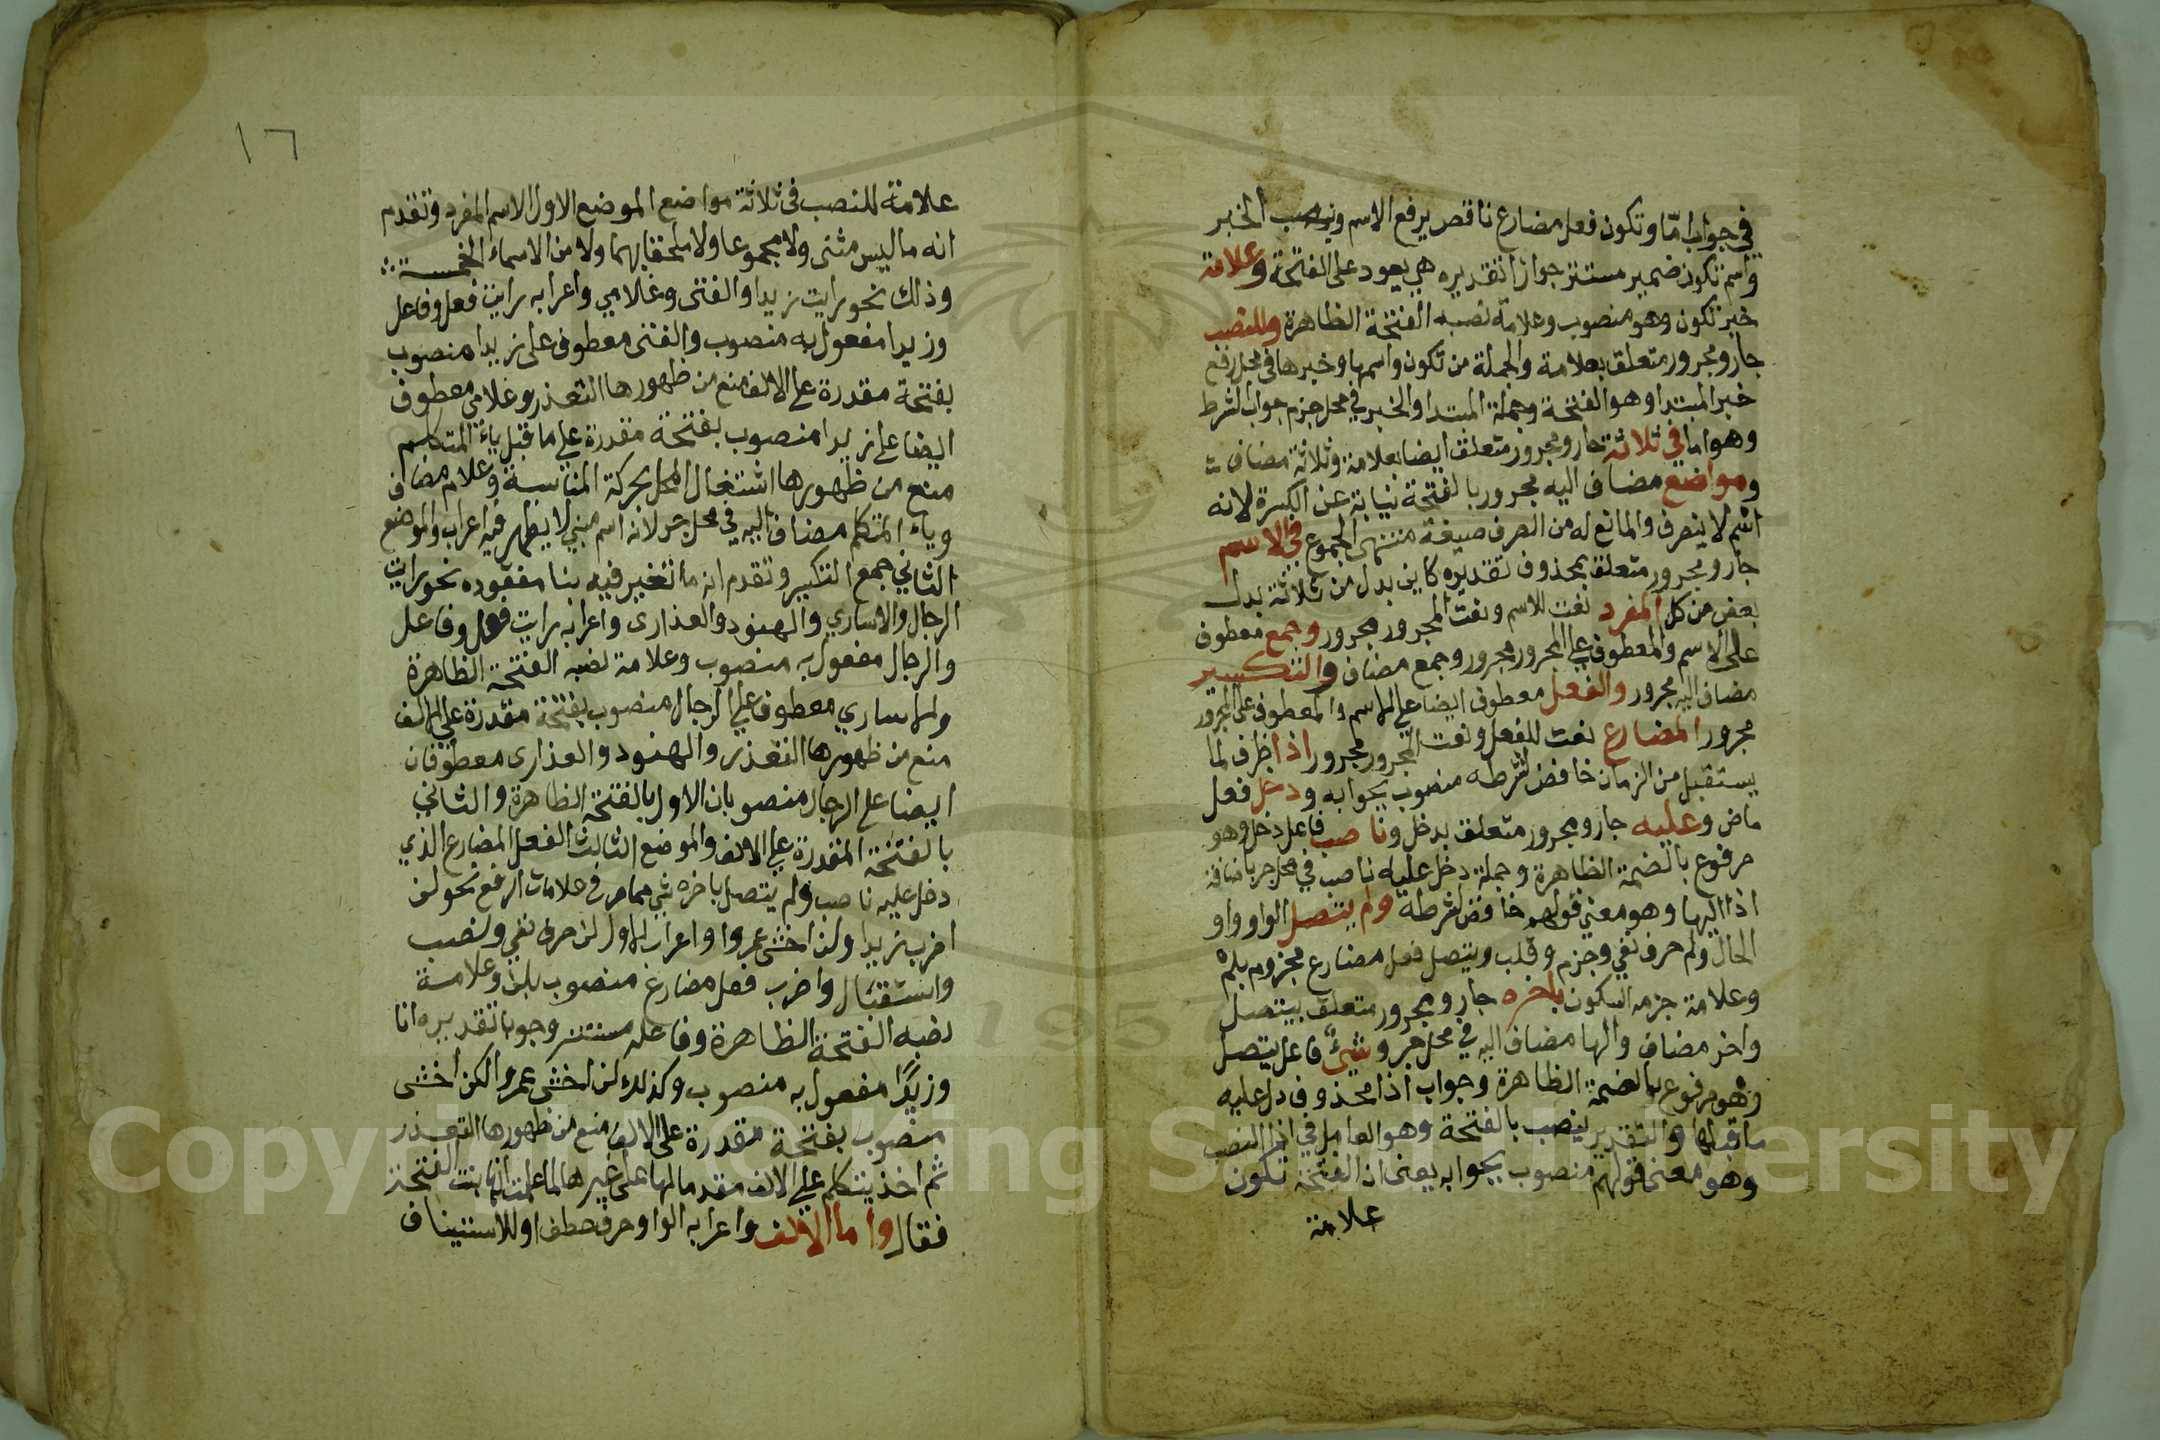 في جواب امّا وتكون فعل مضارع ناقص يرفع الاسم وينصب الخبر
واسم تكون ضمير مستتر جوازا تقديره هي يعود على الفتحة وعلامة
خبر تكون وهو منصوب وعلامة نصبه الفتحة الظاهرة وللنصب
جار ومجرور متعلق بعلامة والجملة من تكون واسمها وخبرها في محل رفع
خبر المبتدا وهو الفتحة وجملة المبتدا والخبر في محل جزم جواب الشرط
وهو اما في ثلاثة جار ومجرور متعلق ايضا بعلامة وثلاثة مضاف
ومواضع مضاف اليه مجرور بالفتحة نيابة عن الكسرة لانه
اسم لا ينصرف والمانع له من الصرف صيغة منتهى الجموع في الاسم
جار ومجرور متعلق بمحذوف تقديره كاين بدل من ثلاثة بدل
بعض من كل المفرد نعت للاسم ونعت المجرور مجرور وجمع معطوف
على الاسم والمعطوف علي المجرور مجرور وجمع مضاف والتكسير
مضاف اليه مجرور والفعل معطوف ايضا علي الاسم والمعطوف على المجرور
مجرور المضارع نعت للفعل ونعت المجرور مجرور اذا ظرف لما
يستقبل من الزمان خافض لشرطه منصوب بجوابه ودخل فعل
ماض وعليه جار ومجرور متعلق بدخل وناصب فاعل دخل وهو
مرفوع بالضمة الظاهرة وجملة دخل عليه ناصب في محل جر باضافة
اذا اليها وهو معني قولهم خافض لشرطه ولم يتصل الواو واو
الحال ولم حرف نفي وجزم وقلب ويتصل فعل مضارع مجزوم بلم
وعلامة جزمه السكون باخره جار ومجرور متعلق بيتصل
واخر مضاف والها مضاف اليه في محل جر وشيءٌ فاعل يتصل
وهو مرفوع بالضمة الظاهرة وجواب اذا محذوف دل عليه
ما قبلها والتقدير ينصب بالفتحة وهو العامل في اذا النصب
وهو معنى قولهم منصوب بجوابه يعنى ان الفتحة تكون
علامة
١٦
علامة للنصب في ثلاثة مواضع الموضع الاول الاسم المفرد وتقدم
انه ما ليس مثنى ولا مجموعا ولا ملحقا بهما ولا من الاسماء الخمسة
وذلك نحو رايت زيدا والفتى وغلامي واعرابه رايت فعل وفاعل
وزيدا مفعول به منصوب والفتى معطوف على زيدا منصوب
بفتحة مقدرة علي الالف منع من ظهورها التعذر وغلامي معطوف
ايضا علي زيدا منصوب بفتحة مقدرة علي ما قبل ياء المتكلم
منع من ظهورها اشتغال المحل بحركة المناسبة وغلام مضاف
وياء المتكلم مضاف اليه في محل جر لانه اسم مبني لا يظهر فيه اعراب والموضع
الثاني جمع التكسير وتقدم انه ما تغير فيه بنا مفرده نحو رايت
الرجال والاساري والهنود والعذارى واعرابه رايت فعل وفاعل
والرجال مفعول به منصوب وعلامة نصبه الفتحة الظاهرة
والاساري معطوف علي الرجال منصوب بفتحة مقدرة علي الالف
منع من ظهورها التعذر والهنود والعذارى معطوفان
ايضا علي الرجال منصوبان الاول بالفتحة الظاهرة والثاني
بالفتحة المقدرة علي الالف والموضع الثالث الفعل المضارع الذي
دخل عليه ناصب ولم يتصل باخره شي مما مر في علامات الرفع نحو لن
اضرب زيدا ولن اخشى عمروا واعراب الاول لن حرف نفي ونصب
واستقبال واضرب فعل مضارع منصوب بلن وعلامة
نصبه الفتحة الظاهرة وفاعله مستتر وجوبا تقديره انا
وزيدًا مفعول به منصوب وكذلك لن اخشى عمروا لكن اخشى
منصوب بفتحة مقدرة على الالف منع من ظهورها التعذر
ثم اخذ يتكلم علي الالف مقدما لها على غيرها لما علمت انها بنت الفتحة
فقال واما الالف واعرابه الواو حرف عطف او للاستيناف
Copyright © King Saud University
1957